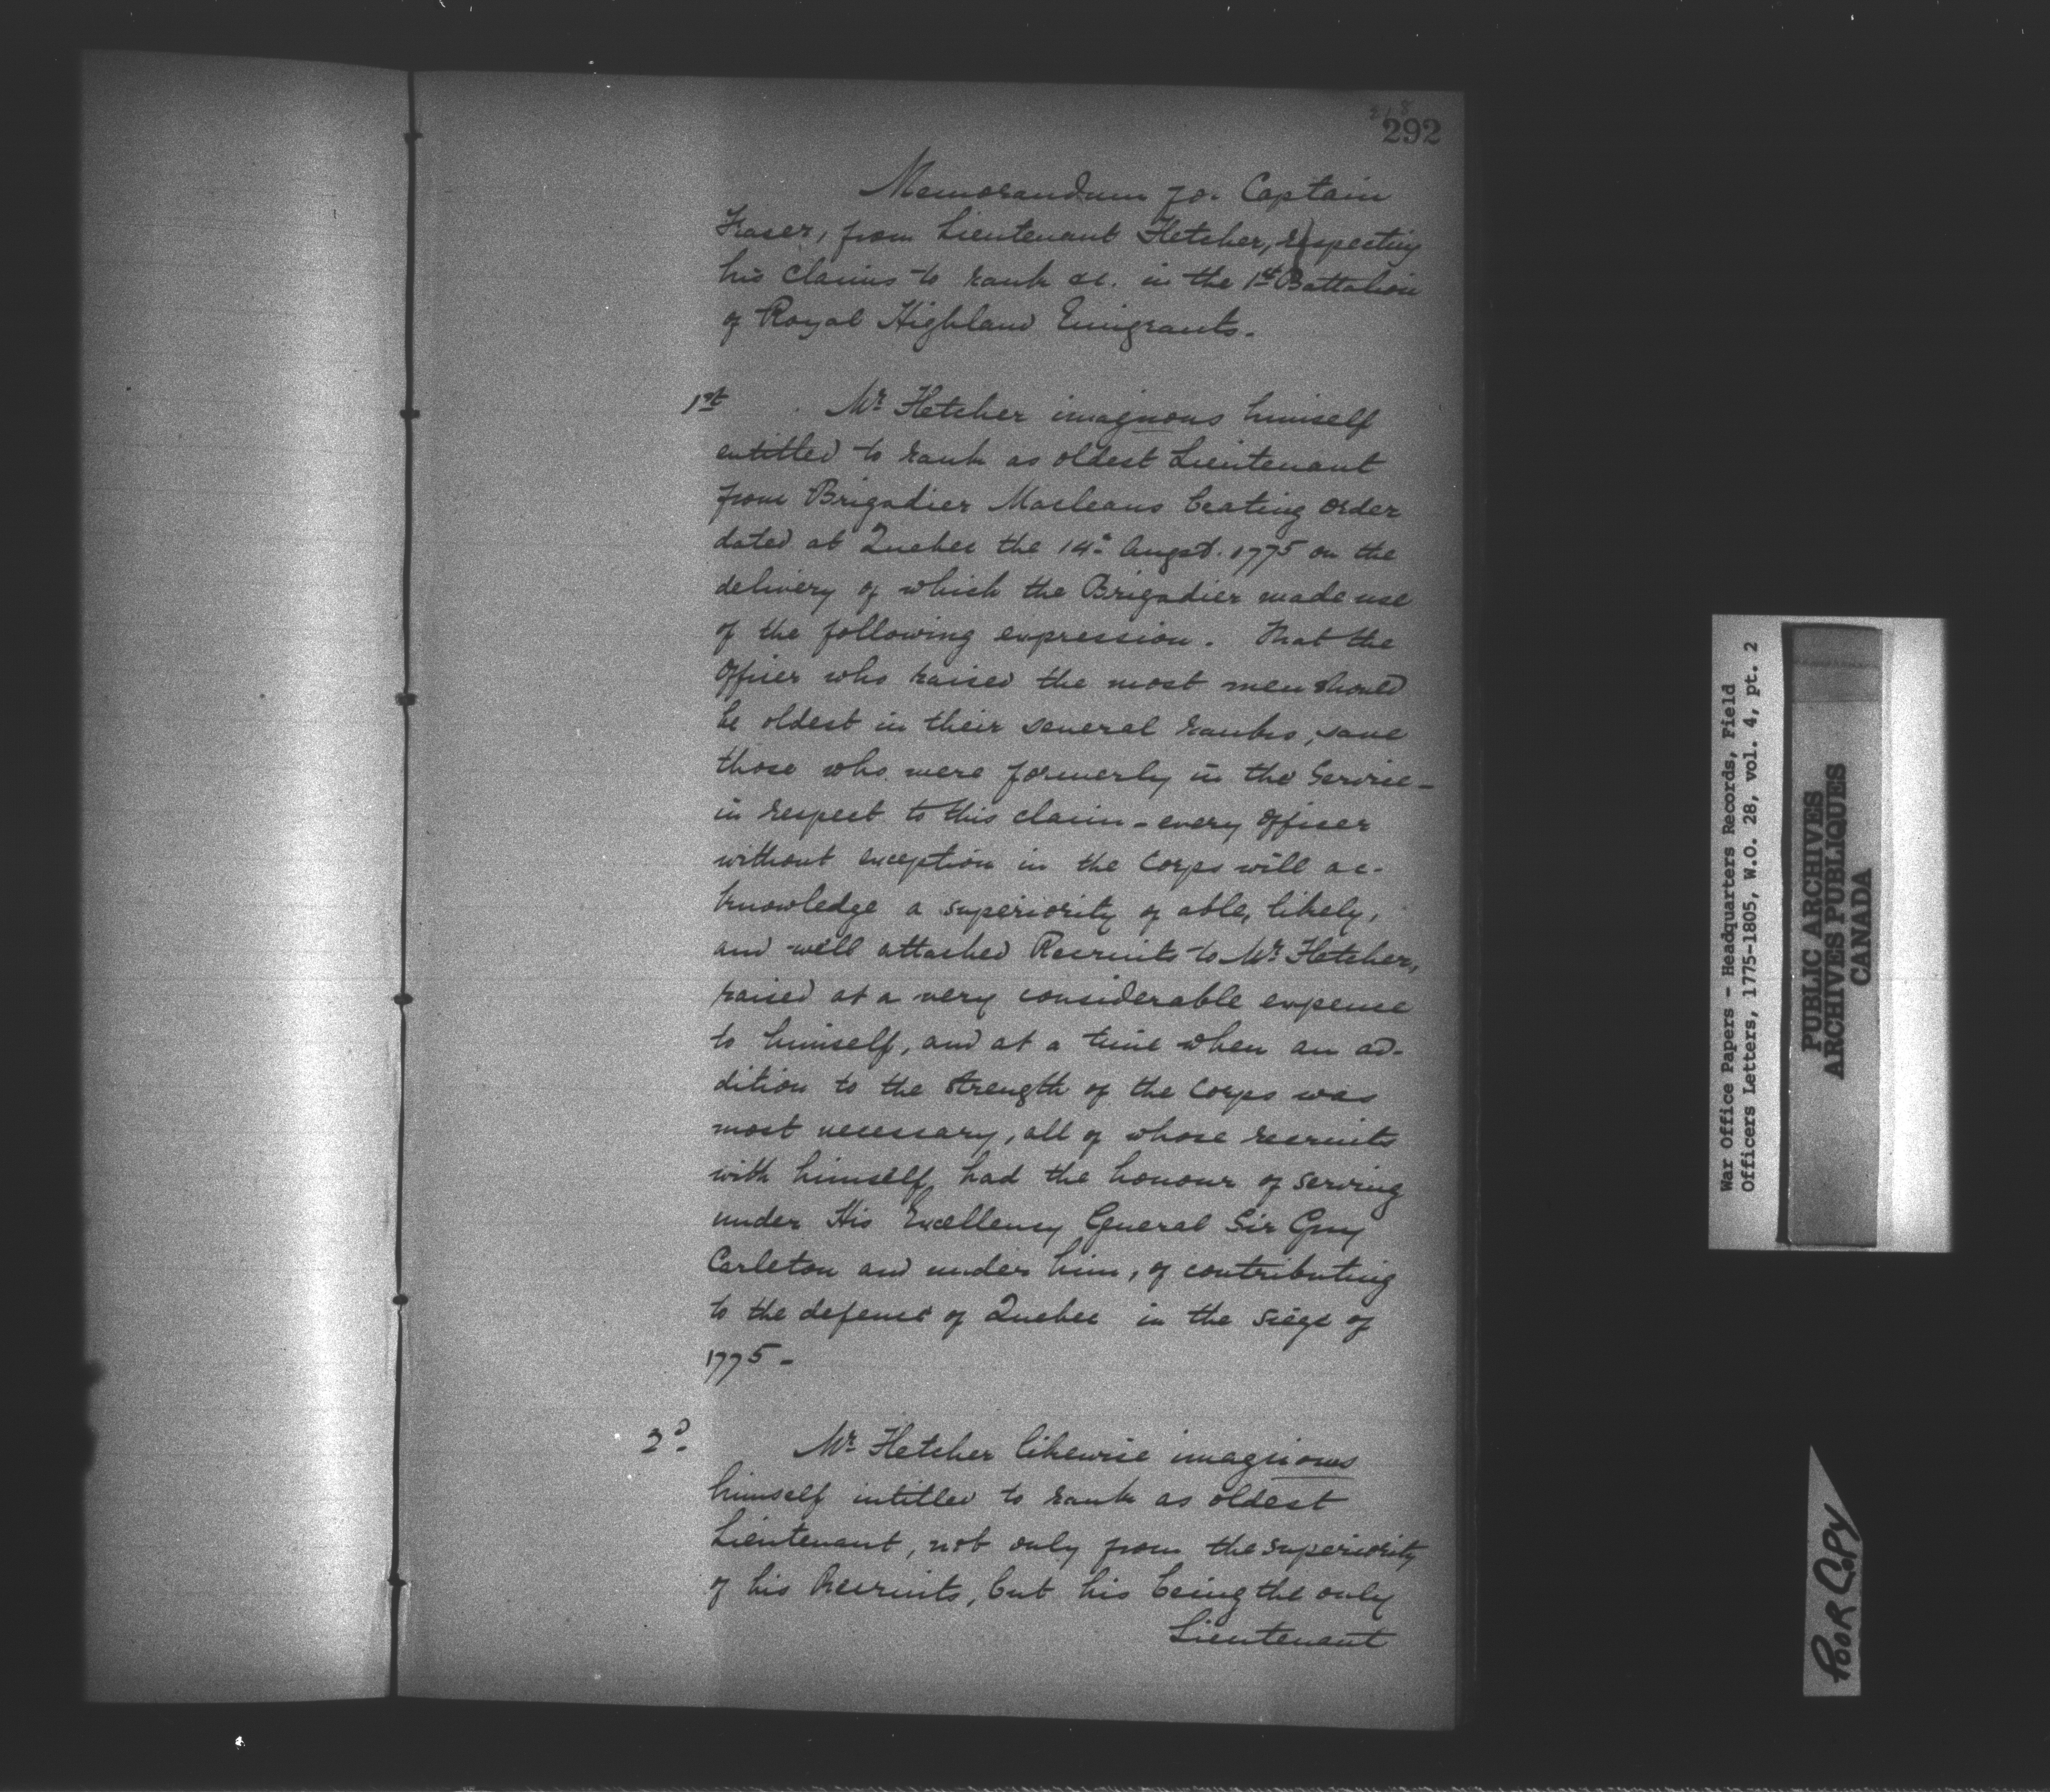 292
Memorandum for Captain
Fraser, from Lieutenant Fletcher, respecting
his claims to rank &c. in the 1st Battalion
of Royal Highland Emigrants.
1st Mr Fletcher imagnous himself
entitled to rank as oldest Lieutenant
from Brigadier Macleans beating order
dated at Quebec the 14th Augst. 1775 on the
delivery of which the Brigadier made use
of the following expression. That the
Officer who raised the most men should
be oldest in their several ranks, save
those who were formerly in the Service -
in respect to this claim - every Officer
without exception in the Corps will ac-
knowledge a superiority of able, likely,
and well attached Recruits to Mr Fletcher,
raised at a very considerable expense
to himself, and at a time when an ad-
dition to the strength of the Corps was
most necessary, all of whose recruits
with himself had the honour of serving
under His Excellency General Sir Guy
Carleton and under him, of contributing
to the defense of Quebec in the siege of
1775 -
2d. Mr Fletcher likewise imaginows
himself intitled to rank as oldest
Lieutenant, not only from the superiority
of his Recruits, but his being the only
Lieutenant
War Office Papers - Headquarters Records, Field
Officers Letters, 1775-1805, W.O. 28, vol. 4, pt. 2
PUBLIC ARCHIVES
ARCHIVES PUBLIQUES
CANADA
POOR COPY